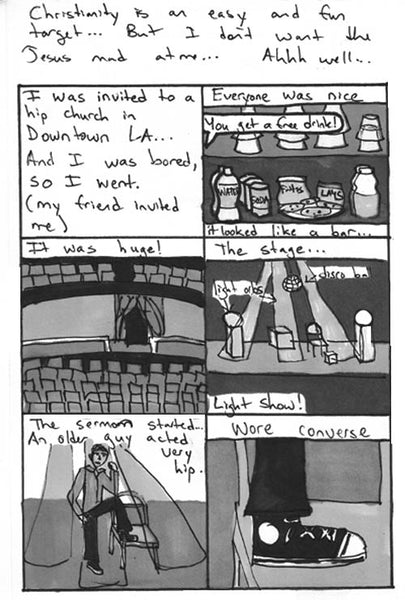 Christianity is an easy and fun
target... But I don't want the
Jesus mad at me... Ahhh well...
I was invited to a
hip church in
Downtown LA...
And I was bored,
so I went.
(my friend invited
me)
Everyone was nice
You get a free drink!
WATER
SODA
Fritos
LAYS
it looked like a bar...
It was huge!
The stage...
disco ball
light orbs
Light Show!
The sermon started...
An older guy acted
very
hip.
Wore converse